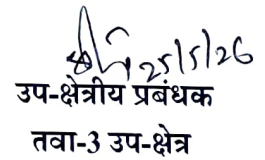 25/5/26
उप-क्षेत्रीय प्रबंधक
तवा-3 उप-क्षेत्र